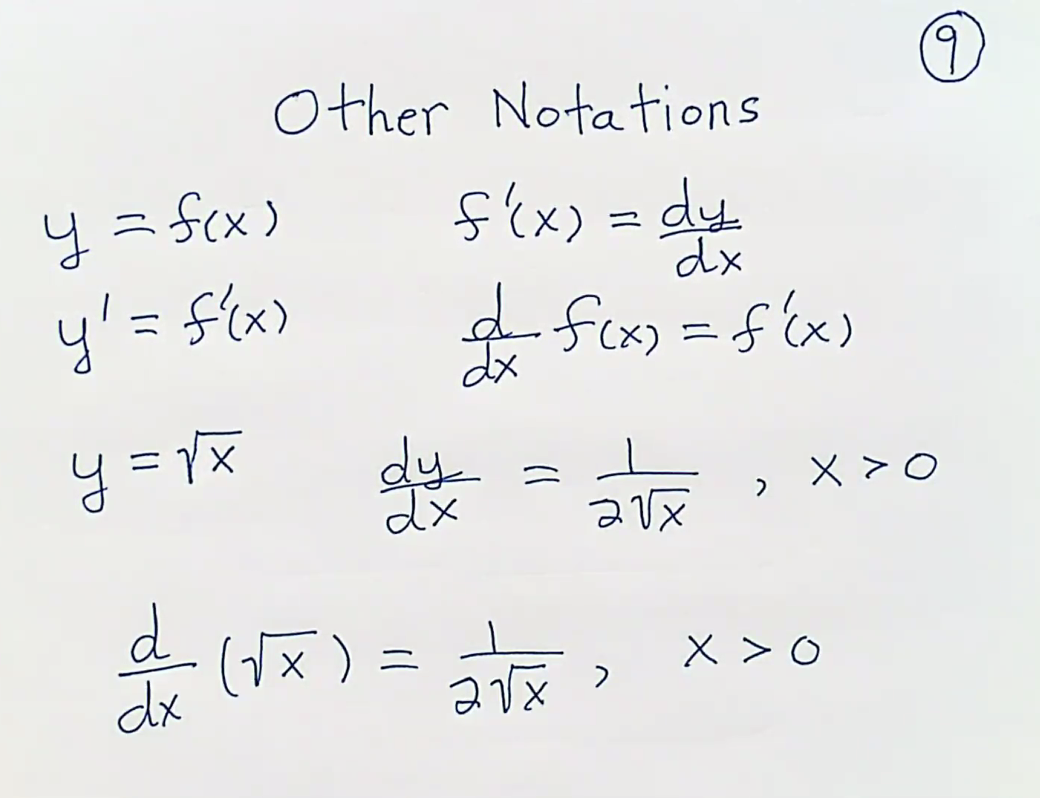 9
Other Notations
y = f(x)    f'(x) = dy/dx
y' = f'(x)    d/dx f(x) = f'(x)
y = √x    dy/dx = 1/(2√x) , x > 0
d/dx (√x) = 1/(2√x) , x > 0